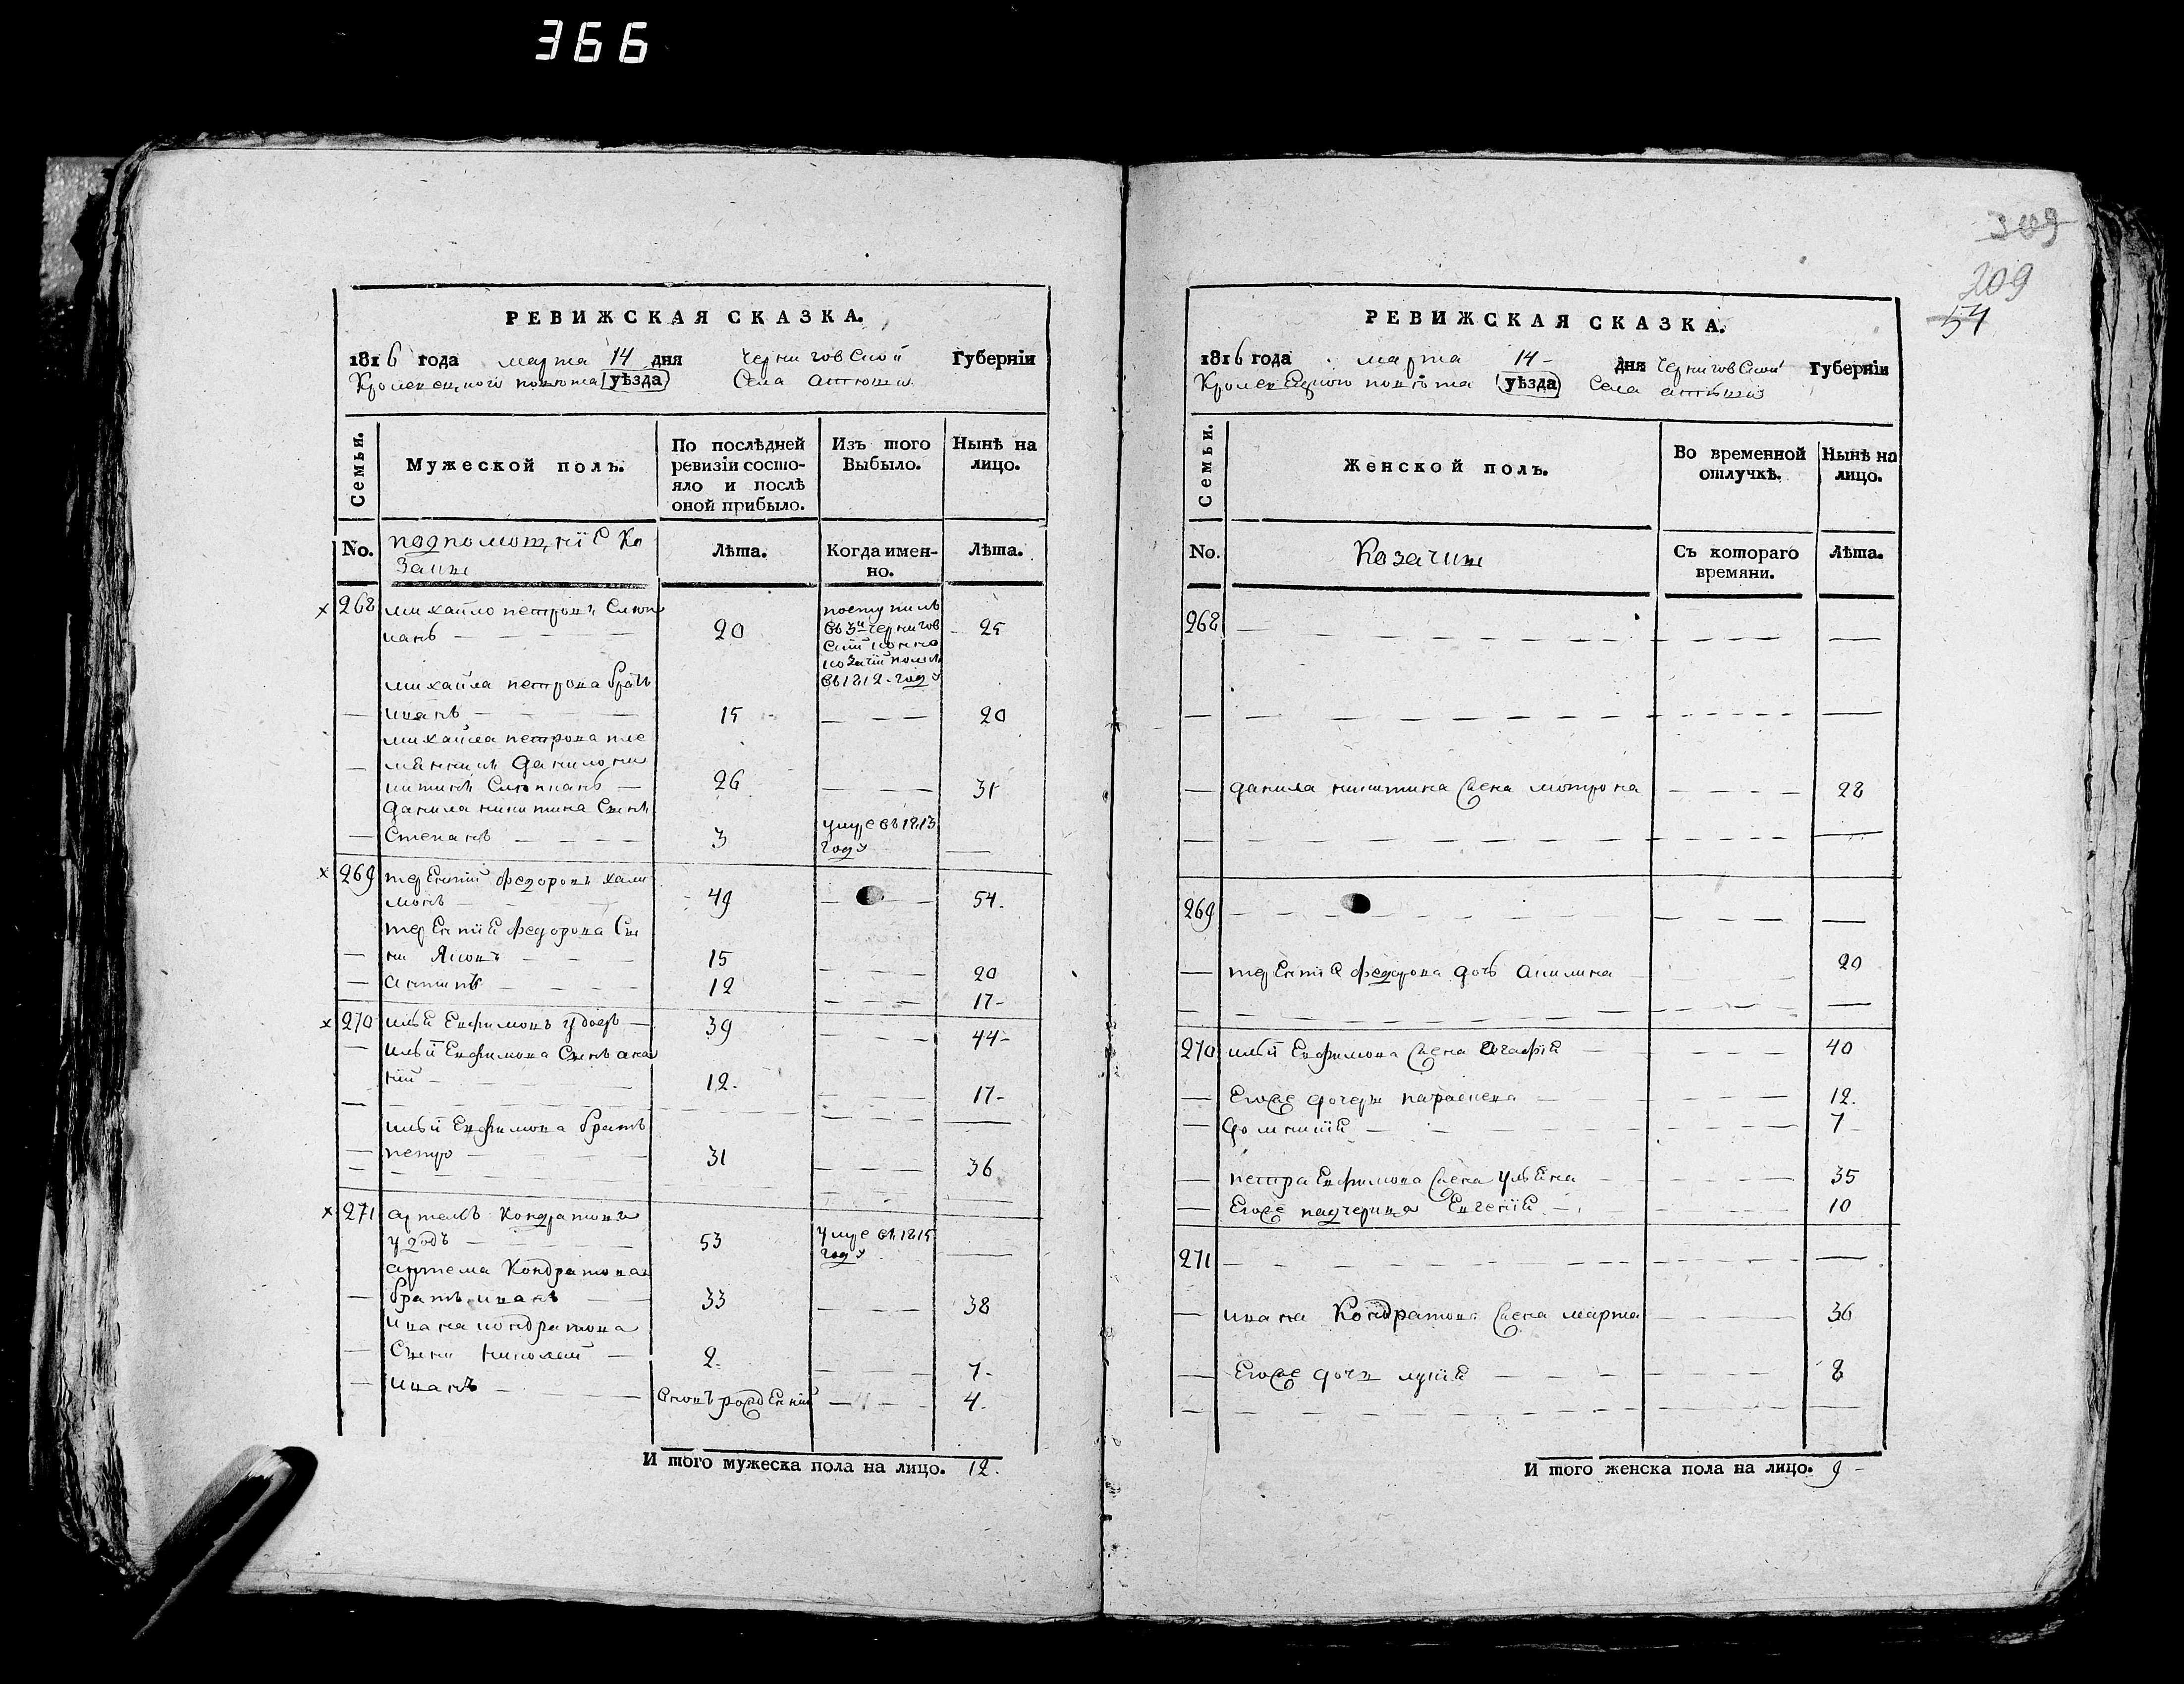 366
309
209
54
РЕВИЖСКАЯ СКАЗКА.
1816 года марта 14 дня Черниговской Губерніи
Кролевецкого повѣта уѣзда Села
Семьи.
Мужеской полъ.
По послѣдней ревизіи состояло и послѣ оной прибыло.
Изъ того Выбыло.
Нынѣ на лицо.
No.
подпомощніе Ко
заки
Лѣта.
Когда именно.
Лѣта.
268 михайло петровъ
20
поступилъ
въ 3й чернигов
ской конно
козачій полкъ
въ 1812 году
25
михайла петрова братъ
иванъ 15 20
михайла петрова пле
мянникъ данило ни
китинъ 26 31
данила никитина сынъ
Степанъ 3 умре въ 1813
году
269 терентій федоровъ хали
монъ 49 54.
терентіе федорова сы
ни яковъ 15 20
антипъ 12 17
270 илья Евфимовъ 39 44
ильи Евфимова сынъ ана
ній 12. 17
ильи Евфимова братъ
петро 31 36
271 артемъ Кондратовъ
53 умре въ 1815
году
артема Кондратова
братъ иванъ 33 38
ивана кондратова
сыни николай 2. 7
иванъ вновь рожденній 4.
И того мужеска пола на лицо. 12.
РЕВИЖСКАЯ СКАЗКА.
1816 года марта 14 дня Черниговской Губерніи
Кролевецкого повѣта уѣзда Села
Семьи.
Женской полъ.
Во временной отлучкѣ.
Нынѣ на лицо.
No.
Козачки
Съ котораго времяни.
Лѣта.
268
данила никитина жена мотрона 28
269
терентіе федорова дочь акилина 20
270 ильи Евфимова жена агафія 40
Егоже дочери параскева 12.
домникія 7
петра Евфимова жена ульяна 35
Егоже падчерица Евгенія 10
271
ивана Кондратова жена марта 36
Егоже дочь лукія 8
И того женска пола на лицо. 9